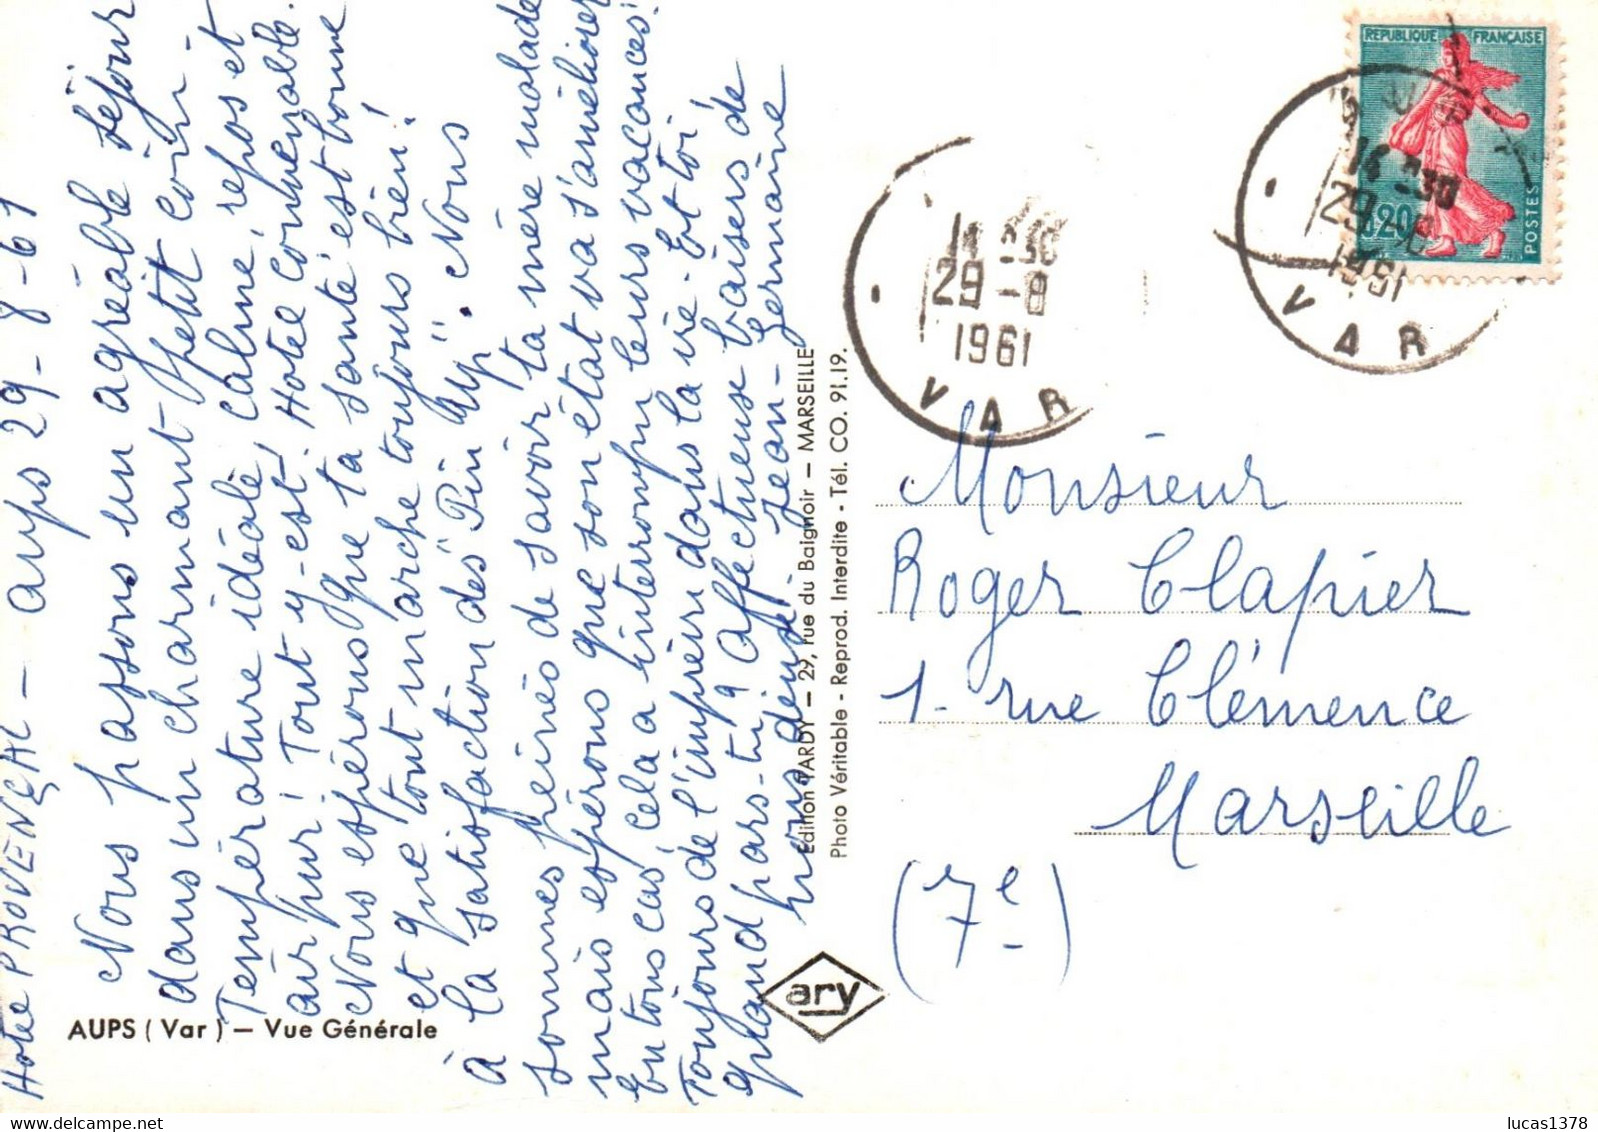 Hôtel PROVENÇAL — Aups 29-8-61
Nous passons un agréable séjour
dans un charmant petit coin -
Température idéale, calme, repos et
air pur ! Tout y est ! Hôtel convenable.
Nous espérons que ta santé est bonne
et que tout marche toujours bien !
à la satisfaction des "Pin Up". Nous
sommes peinés de savoir ta mère malade
mais espérons que son état va s'améliorer
En tous cas, cela a interrompu leurs vacances !
Toujours de l'imprévu dans la vie - Et toi
quand pars-tu ? Affectueux baisers de
nous deux. Jean - Germaine
AUPS ( Var ) — Vue Générale
Edition TARDY — 29, rue du Baignoir — MARSEILLE
Photo Véritable - Reprod. Interdite - Tél. CO. 91.19.
ary
14 -30
29 -8
1961
VAR
REPUBLIQUE FRANÇAISE
0,20
POSTES
14 -30
29 -8
1961
VAR
Monsieur
Roger Clapier
1- rue Clémence
Marseille
(7e)
lucas1378